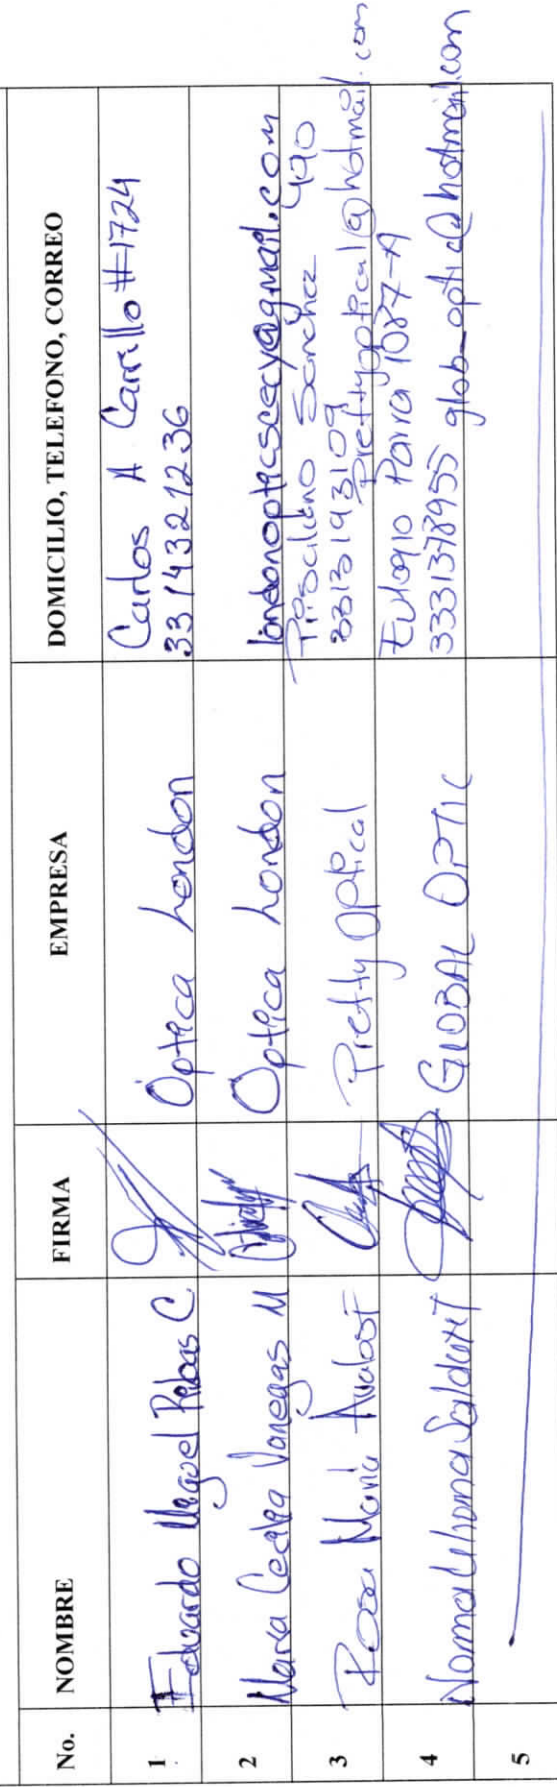 No. NOMBRE FIRMA EMPRESA DOMICILIO, TELEFONO, CORREO
1 Eduardo Miguel Ribas C Optica London Carlos A Carrillo #1724
3314321236
2 Maria Cecilia Vanegas M Optica London londonopticscecy@gmail.com
3 Rosa Maria Avalos F Pretty Optical Prisciliano Sanchez 490
3313193109
Prettyoptical@hotmail.com
4 Norma Saldaña T GLOBAL OPTIC Eulogio Parra 1087-A
3331378955 glob_optic@hotmail.com
5